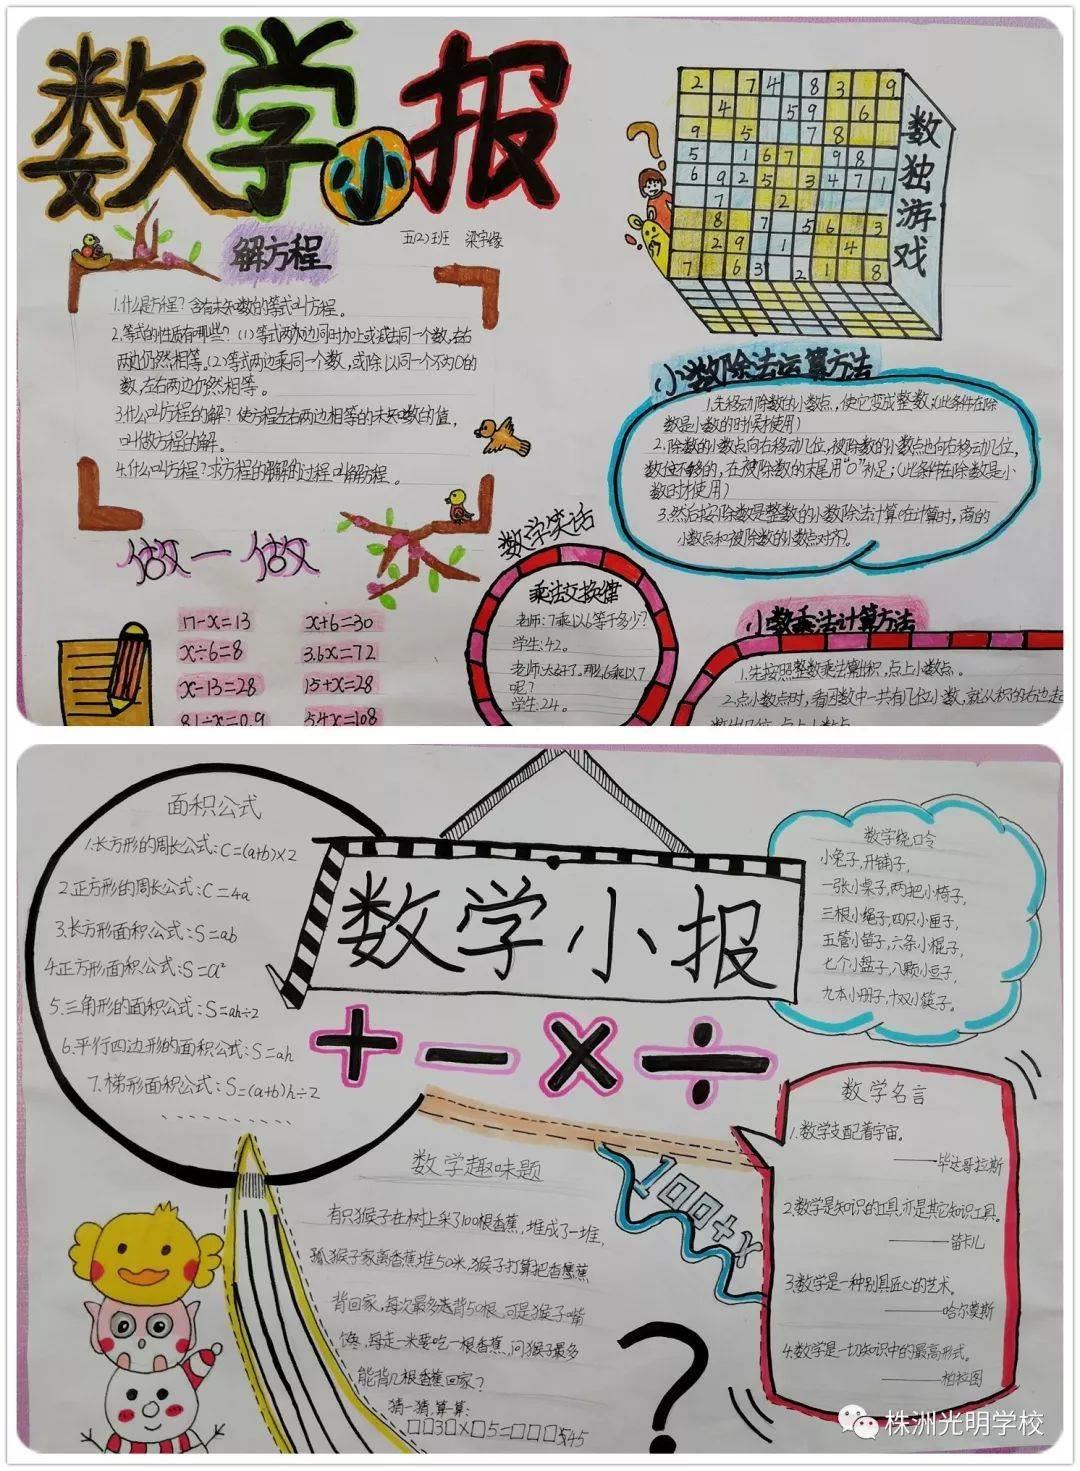 数学小报
五(2)班 梁宇缘
解方程
1.什么是方程?含有未知数的等式叫方程。
2.等式的性质有哪些?(1)等式两边同时加上或减去同一个数,左右
两边仍然相等。(2)等式两边乘同一个数,或除以同一个不为0的
数,左右两边仍然相等。
3.什么叫方程的解?使方程左右两边相等的未知数的值,
叫做方程的解。
4.什么叫方程?求方程的解的过程叫解方程。
做一做
17-x=13 x+6=30
x÷6=8 3.6x=72
x-13=28 15+x=28
8.1÷x=0.9 5.4x=108
2 7 4 8 3 9
4 5 9 6
9 5 7 8
5 1 6 7 9 8
6 9 2 5 3 4 7 1
7 2
8 7 5 6 3
2 9 1 4
7 6 3 2 1 8
数独游戏
小数除法运算方法
1.先移动除数的小数点,使它变成整数;(此条件在除
数是小数的时候才使用)
2.除数的小数点向右移动几位,被除数的小数点也向右移动几位,
数位不够的,在被除数的末尾用"0"补足;(此条件在除数是小
数时才使用)
3.然后按除数是整数的小数除法计算。在计算时,商的
小数点和被除数的小数点对齐。
数学笑话
乘法交换律
老师:7乘以6等于多少?
学生:42。
老师:太好了。那么6乘以7
呢?
学生:24。
小数乘法计算方法
1.先按照整数乘法算出积,点上小数点。
2.点小数点时,看因数中一共有几位小数,就从积的右边起
数出几位,点上小数点
面积公式
1.长方形的周长公式:C=(a+b)×2
2.正方形的周长公式:C=4a
3.长方形面积公式:S=ab
4.正方形面积公式:S=a²
5.三角形的面积公式:S=ah÷2
6.平行四边形的面积公式:S=ah
7.梯形面积公式:S=(a+b)h÷2
数学小报
+ - × ÷
数学绕口令
小兔子,开铺子,
一张小桌子,两把小椅子,
三根小绳子,四只小匣子,
五管小笛子,六条小棍子,
七个小盘子,八颗小豆子,
九本小册子,十双小筷子。
数学名言
1.数学支配着宇宙。
——毕达哥拉斯
2.数学是知识的工具,亦是其它知识工具。
——笛卡儿
3.数学是一种别具匠心的艺术。
——哈尔莫斯
4.数学是一切知识中的最高形式。
——柏拉图
数学趣味题
有只猴子在树上采了100根香蕉,堆成了一堆,
猴子家离香蕉堆50米,猴子打算把香蕉
背回家,每次最多能背50根,可是猴子嘴
馋,每走一米要吃一根香蕉,问猴子最多
能背几根香蕉回家?
猜一猜,算一算:
□□3□×□5=□□□545
100+x
?
株洲光明学校